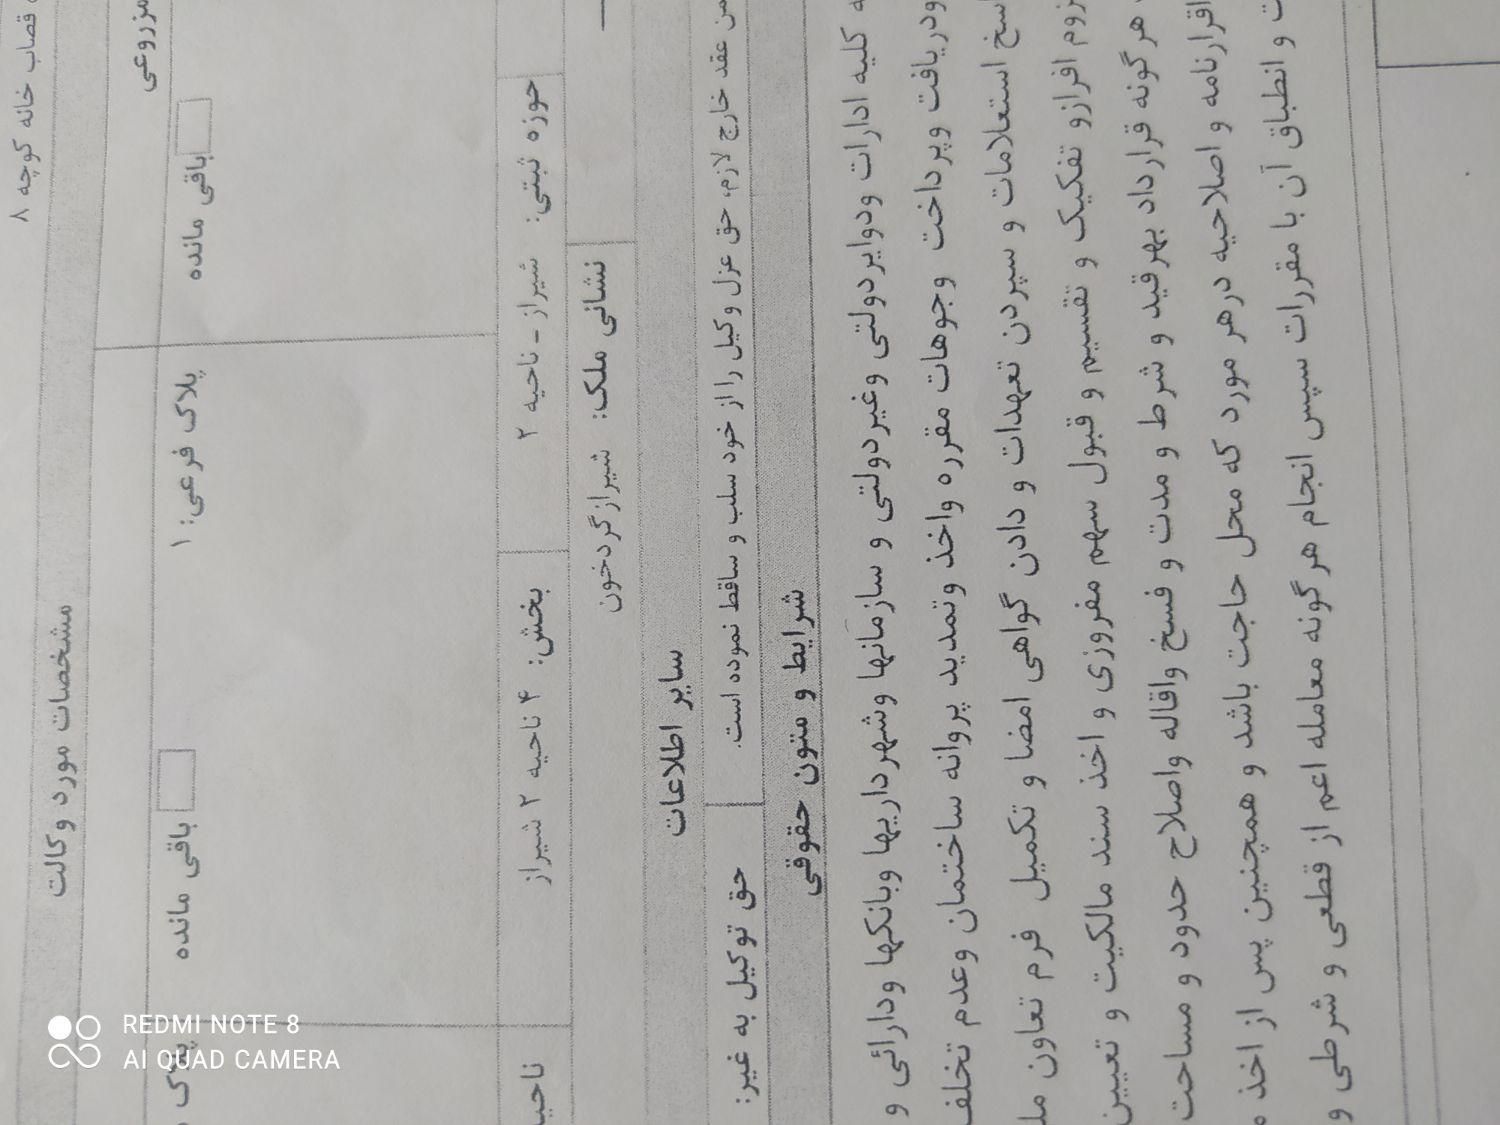 قصاب خانه کوچه ۸
مشخصات مورد وکالت
مزروعی
باقی مانده
پلاک فرعی: ۱
باقی مانده
پلاک
حوزه ثبتی: شیراز - ناحیه ۲
بخش: ۴ ناحیه ۲ شیراز
ناحیه
نشانی ملک: شیراز گردخون
سایر اطلاعات
حق توکیل به غیر:
عقد خارج لازم، حق عزل وکیل را از خود سلب و ساقط نموده است.
شرایط و متون حقوقی
کلیه ادارات ودوایر دولتی وغیر دولتی و سازمانها وشهرداریها وبانکها ودارائی و
ودریافت وپرداخت وجوهات مقرره واخذ وتمدید پروانه ساختمان وعدم تخلف
اسخ استعلامات و سپردن تعهدات و دادن گواهی امضا و تکمیل فرم تعاون مل
زوم افرازو تفکیک و تقسیم و قبول سهم مفروزی و اخذ سند مالکیت و تعیین
هرگونه قرارداد بهرقید و شرط و مدت و فسخ واقاله واصلاح حدود و مساحت
اقرارنامه و اصلاحیه درهر مورد که محل حاجت باشد و همچنین پس از اخذ
ت و انطباق آن با مقررات سپس انجام هرگونه معامله اعم از قطعی و شرطی و
REDMI NOTE 8
AI QUAD CAMERA